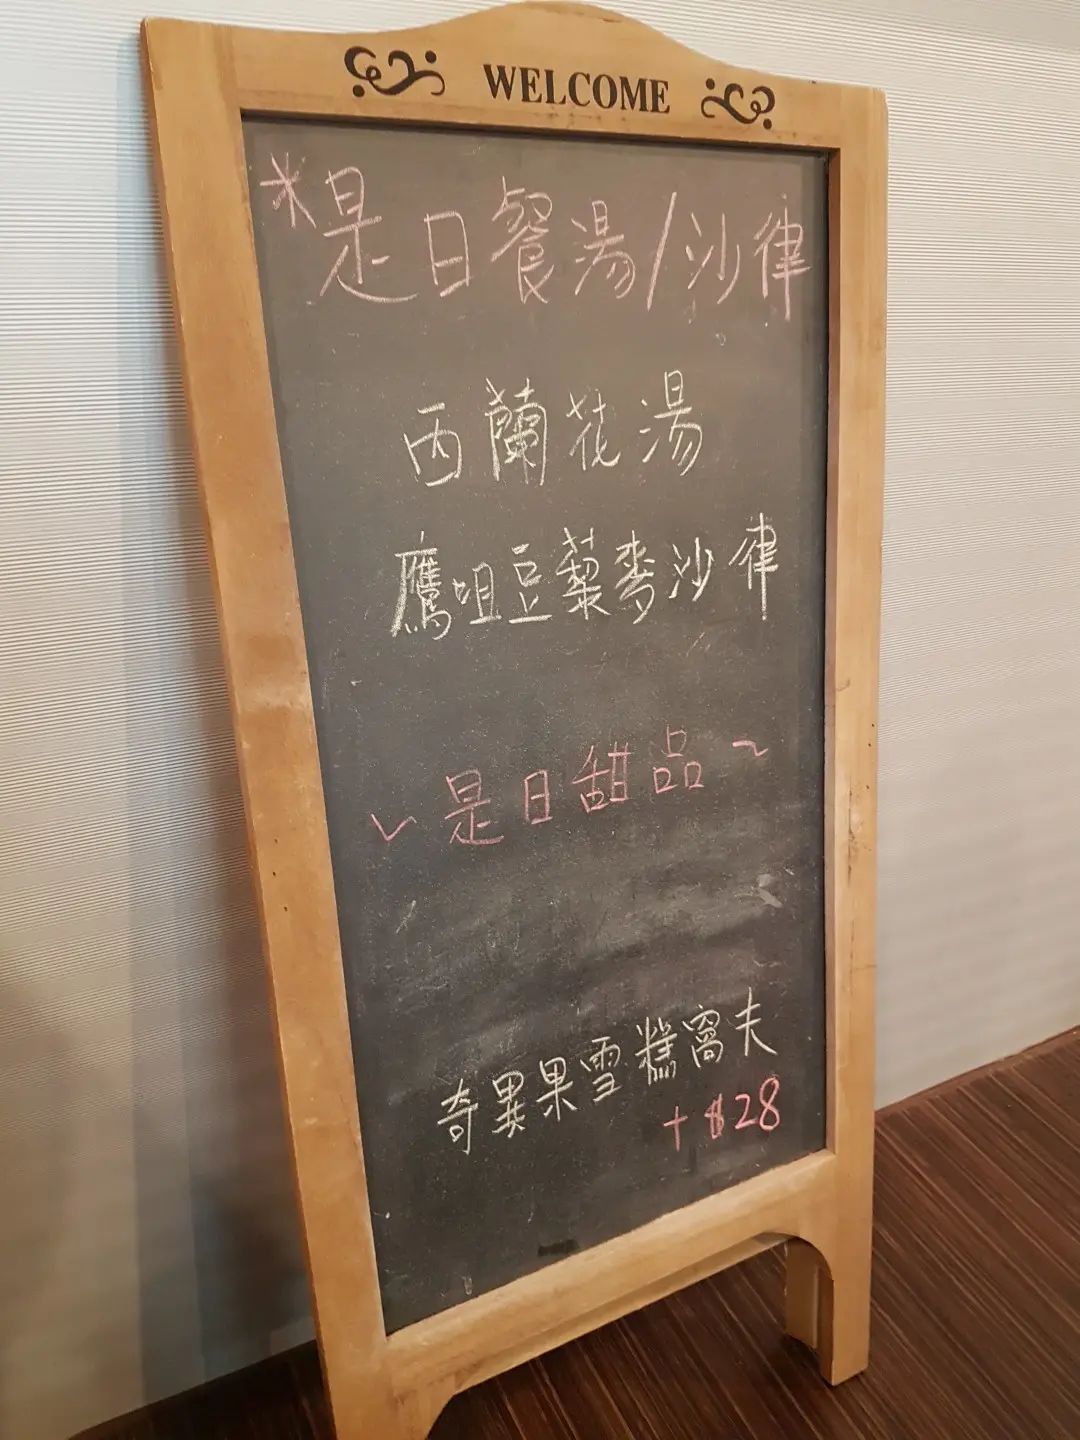 WELCOME
*是日餐湯/沙律
西蘭花湯
鷹咀豆藜麥沙律
~是日甜品~
奇異果雪糕窩夫
+$28